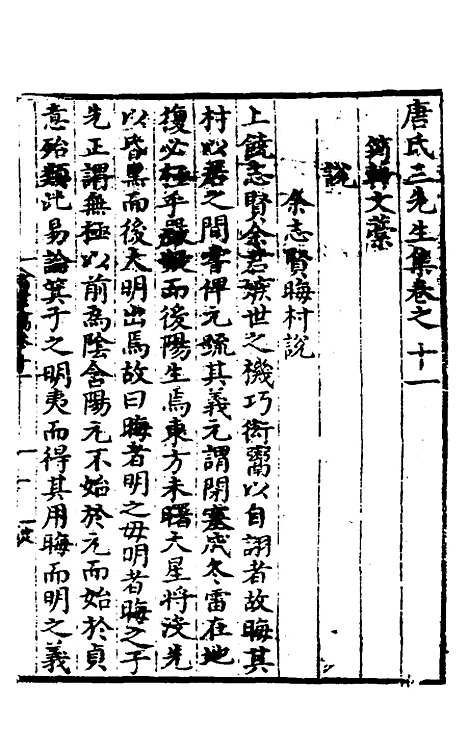 唐氏三先生集卷之十一
筠軒文藁
說
余志賢晦村說
上饒志賢余君嫉世之機巧衒鬻以自詡者故晦其
村以居之間嘗俾元疏其義元謂閉塞成冬雷在地
復必極乎而後陽生焉東方未曙大星將沒先
以昏黑而後大明出焉故曰晦者明之毋明者晦之子
先正謂無極以前為陰含陽元不始於元而始於貞
意殆類此易論箕子之明夷而得其用晦而明之義